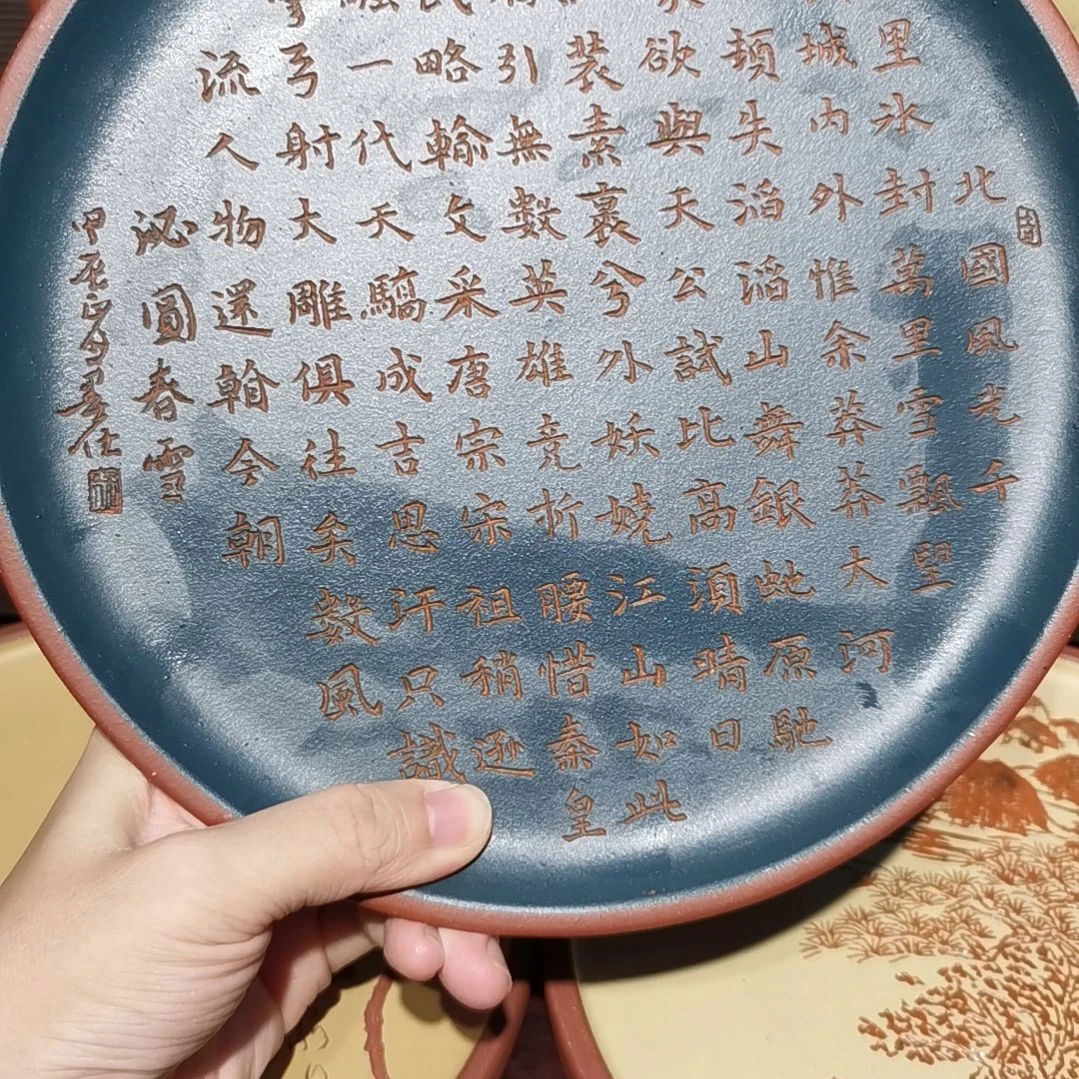 北國風光千
里氷封萬里雪飄望
城内外惟余莽莽大河
頓失滔滔山舞銀虵原馳
欲與天公試比高須晴日
裝素裹兮外妖嬈江山如此
引無數英雄竞折腰惜秦皇
略輸文采唐宗宋祖稍遜
一代天驕成吉思汗只識
弓射大雕俱往矣數風
流人物還翰今朝
泌圓春雪
甲辰